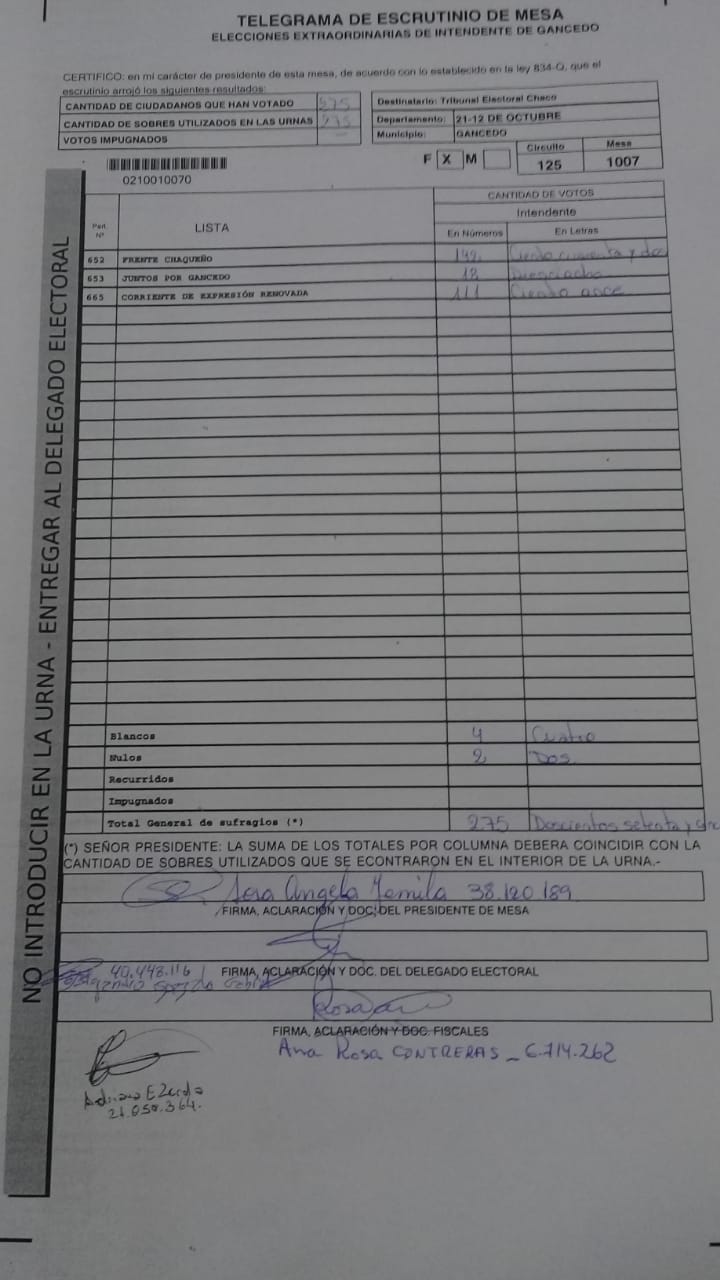 TELEGRAMA DE ESCRUTINIO DE MESA
ELECCIONES EXTRAORDINARIAS DE INTENDENTE DE GANCEDO
CERTIFICO: en mi carácter de presidente de esta mesa, de acuerdo con lo establecido en la ley 834-Q, que el
escrutinio arrojó los siguientes resultados:
CANTIDAD DE CIUDADANOS QUE HAN VOTADO 275
CANTIDAD DE SOBRES UTILIZADOS EN LAS URNAS 275
VOTOS IMPUGNADOS
Destinatario: Tribunal Electoral Chaco
Departamento: 21-12 DE OCTUBRE
Municipio: GANCEDO
F X M
Circuito Mesa
125 1007
0210010070
CANTIDAD DE VOTOS
Intendente
Part. Nº LISTA En Números En Letras
652 FRENTE CHAQUEÑO Ciento y dos
653 JUNTOS POR GANCEDO 18 Dieciocho
665 CORRIENTE DE EXPRESIÓN RENOVADA 111 Ciento once
Blancos 4 Cuatro
Nulos 2 Dos
Recurridos
Impugnados
Total General de sufragios (*) 275 Doscientos setenta y
(*) SEÑOR PRESIDENTE: LA SUMA DE LOS TOTALES POR COLUMNA DEBERA COINCIDIR CON LA
CANTIDAD DE SOBRES UTILIZADOS QUE SE ECONTRARON EN EL INTERIOR DE LA URNA.-
Angela Yamila 38.120.189
FIRMA, ACLARACIÓN Y DOC. DEL PRESIDENTE DE MESA
40.448.116
FIRMA, ACLARACIÓN Y DOC. DEL DELEGADO ELECTORAL
FIRMA, ACLARACIÓN Y DOC. FISCALES
Ana Rosa CONTRERAS _ 6.714.262
21.050.364.
NO INTRODUCIR EN LA URNA - ENTREGAR AL DELEGADO ELECTORAL